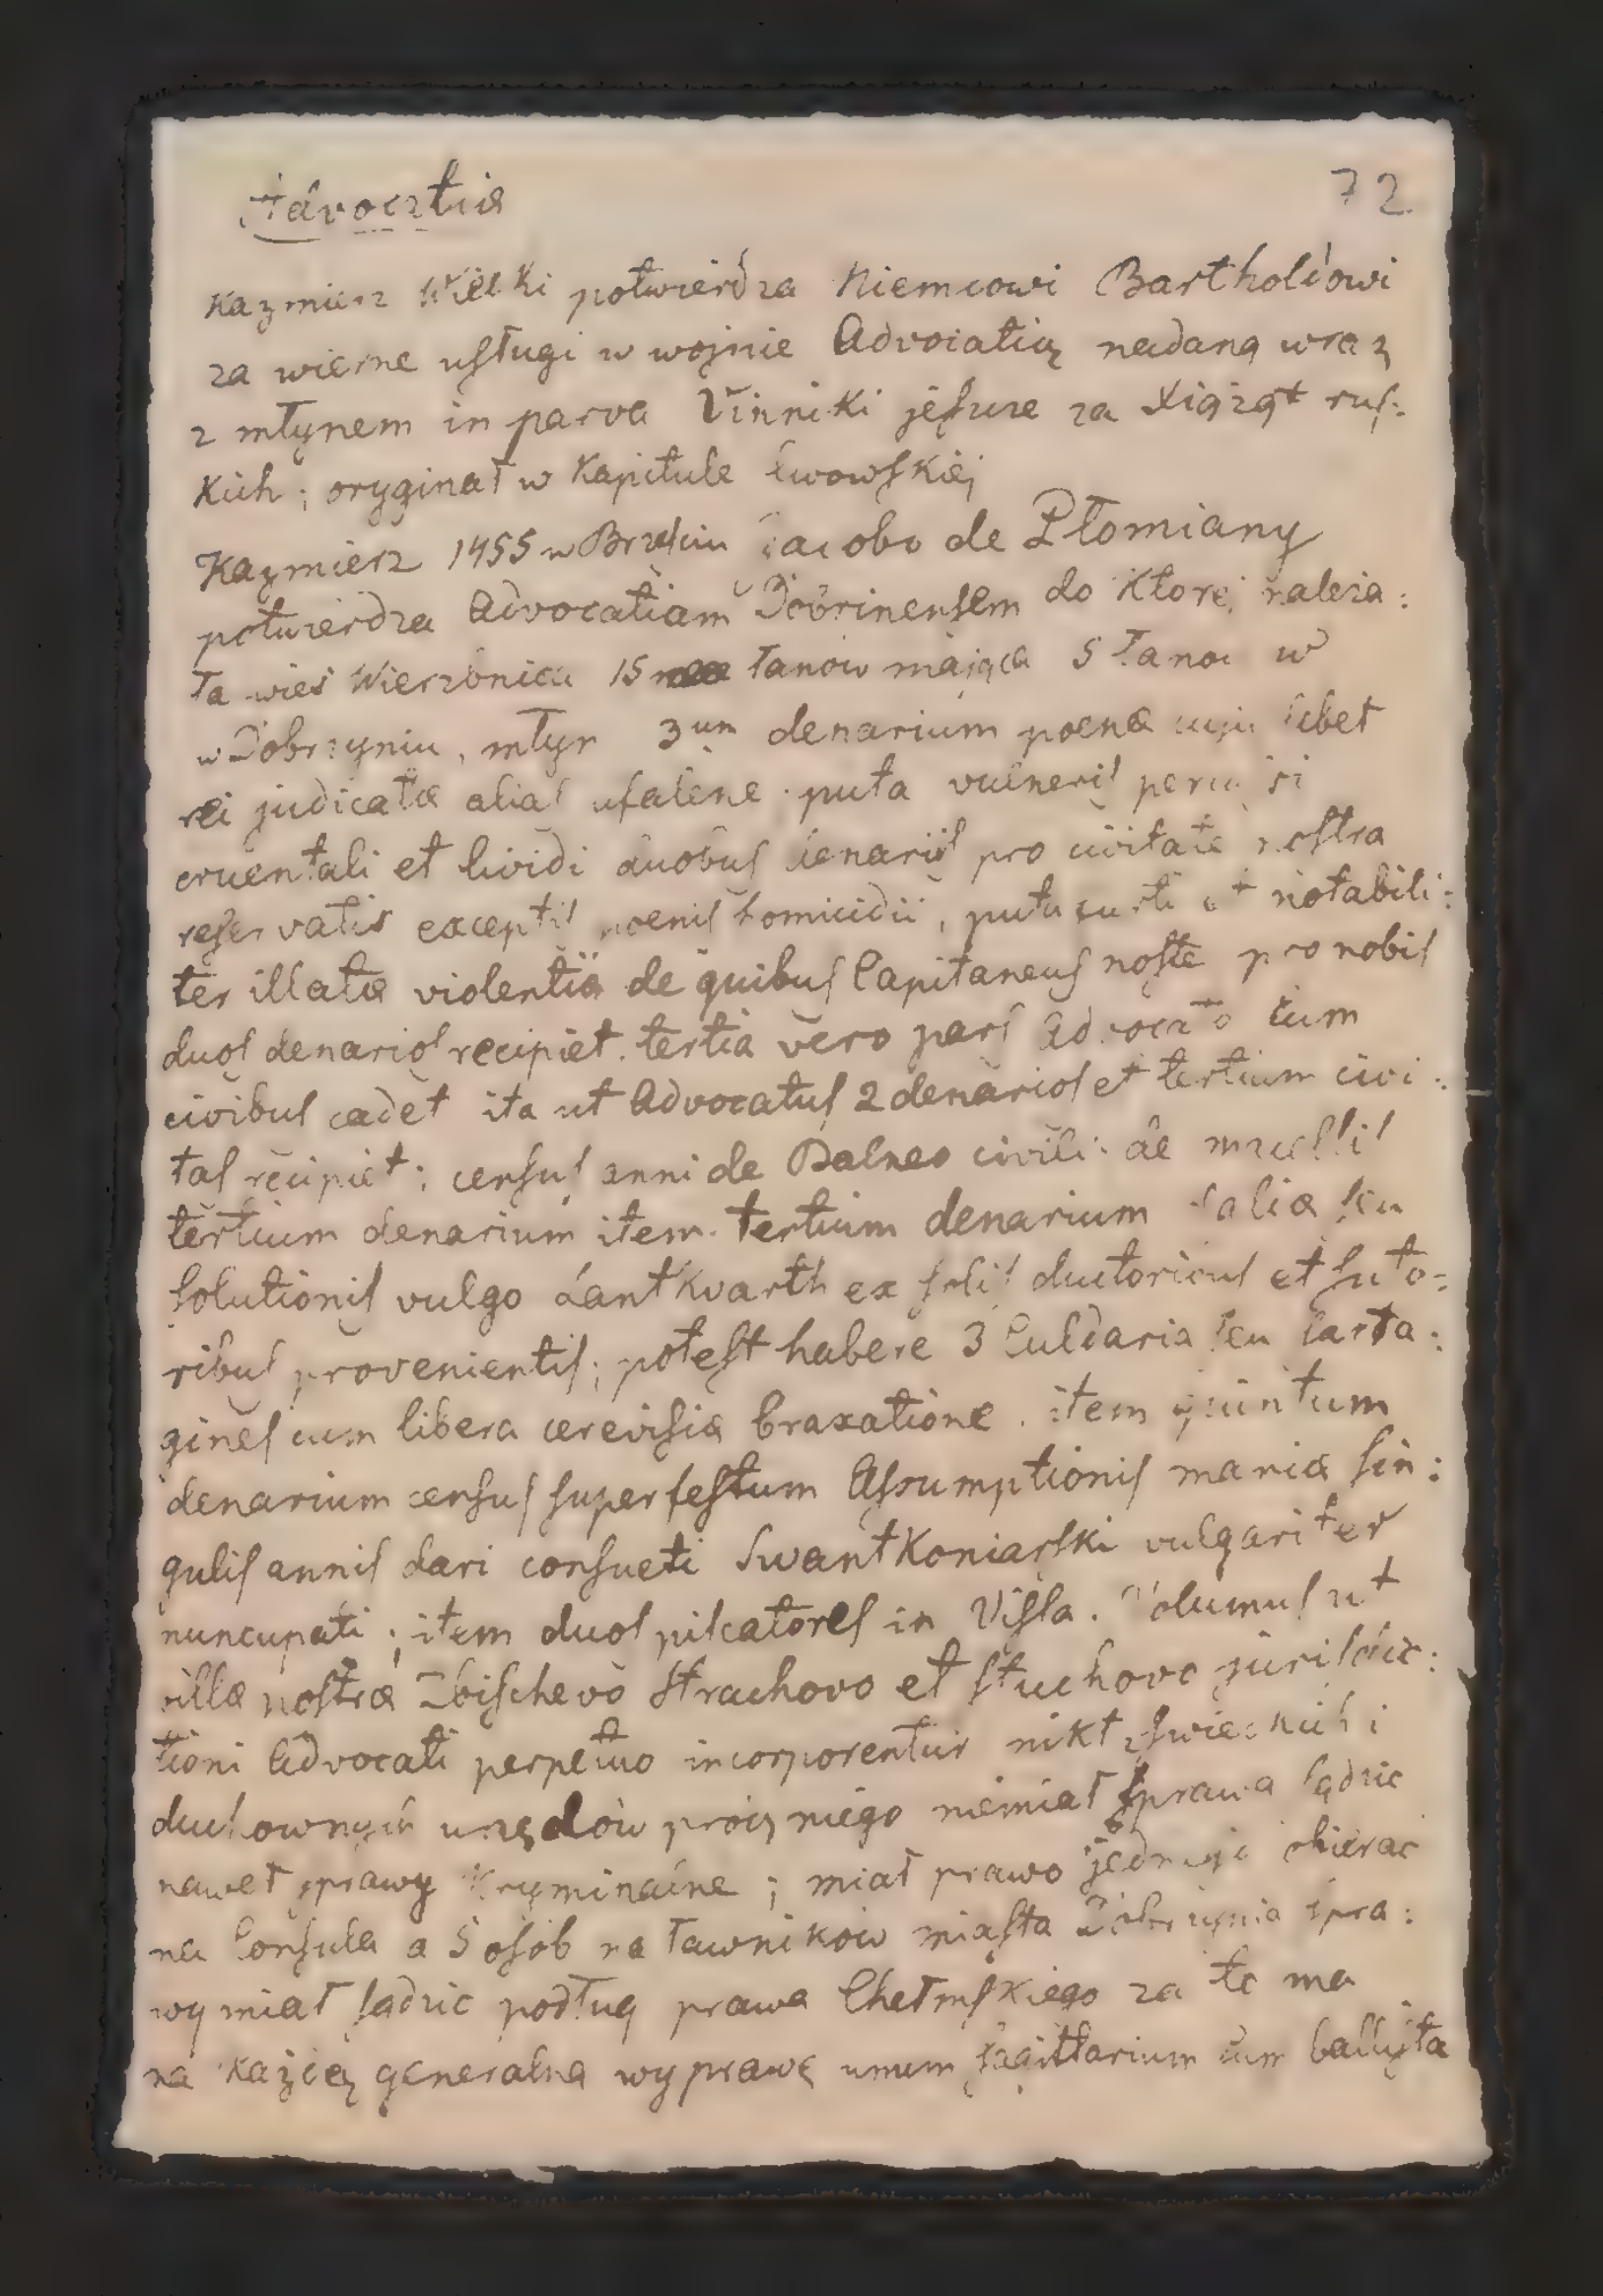 Advocatia
72
Kazmierz Wielki potwierdza Niemcowi Bartholdowi
za wierne usługi w wojnie Advocatią nadaną wraz
z młynem in parva Vinniki jeszcze za Xiążąt rus:
kich; oryginał w Kapitule lwowskiej
Kazmierz 1455 w Brześciu Jacobo de Płomiany
potwierdza Advocatiam Dobrinensem do ktorej należa:
ła wieś Wierzbnica 15 łanow mająca 5 łanow w
w Dobrzyniu, młyn 3um denarium poenæ cuju libet
rei judicatæ alias ufalene puta vulneris percussi
cruentali et lividi duobus denariis pro civitate nostra
reservatis exceptis poenis homicidii, puta furti et notabili:
ter illatæ violentiæ de quibus Capitaneus noste pro nobis
duos denarios recipiet. tertia vero pars Advocato cum
civibus cadet ita ut Advocatus 2 denarios et tertium civi:
tas recipiet; census anni de Balneo civili: de macellis
tertium denarium item tertium denarium saliæ seu
solutionis vulgo Lantkvarth ex salis ductoribus et suto=
ribus provenientis; potest habere 3 Culdaria seu Sarta:
gines cum libera cerevisiæ braxatione. item quintum
denarium census super festum Assumptionis mariæ sin:
gulis annis dari consueti Swantkoniarski vulgariter
nuncupati; item duos piscatores in Visla. Volumus ut
villæ nostræ Zbischevo Strachovo et Stuchovo jurisdic:
tioni Advocati perpetuo incorporentur nikt z swieckich i
duchownych urzędow procz niego niemiał prawa sądzic
nawet sprawy kryminalne; miał prawo jednego obierac
na Consula a 5 osob na ławnikow miasta Dobrzynia spra:
wy miał sądzic podług prawa Chełmskiego za to ma
na każdą generalną wyprawę unum sagittarium cum ballista